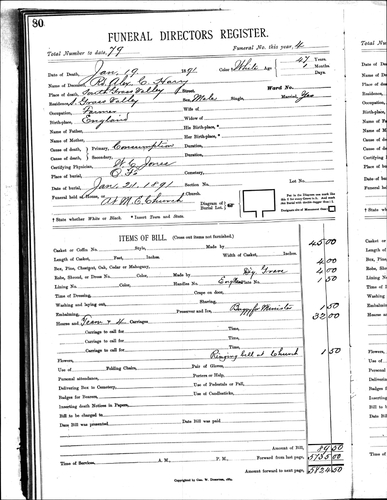 80.
FUNERAL DIRECTORS REGISTER.
Total Number to date, 79 Funeral No. this year, 4
Date of Death, Jan. 19 1891 Color White Age 47 Years
Name of Deceased, Alex. C. Harry 1 Months
Place of death, South Grass Valley Street. Ward No. Days.
Residence, S. Grass Valley Sex, Male Single, Married, Yes
Occupation, Farmer Wife of
Birth-place, England Widow of
Name of Father, His Birth-place,
Name of Mother, Her Birth-place,
Cause of death, Primary, Consumption Duration,
Cause of death, Secondary, Duration,
Certifying Physician, W. C. Jones
Place of burial, O. F. Cemetery,
Date of burial, Jan. 21. 1891 Section No. Lot No.
Funeral held at House, Church. At M. E. Church Diagram of Burial Lot,
‡ State whether White or Black. * Insert Town and State.
ITEMS OF BILL. (Cross out items not furnished.)
Casket or Coffin No. Style, Made by 45 00
Length of Casket, Feet, Inches. Width of Casket, Inches.
Box, Pine, Chestnut, Oak, Cedar or Mahogany, 4 00
Robe, Shroud, or Dress No. Color, Made by Dig. Grave 4 00
Lining No. Color, Handles No. Plate No. 1 50
Time of Dressing, Crape on door,
Washing and laying out, Shaving,
Embalming, Preserver and Ice, Buggy for Minister 1 50
Hearse and Team & 4 Carriages 32 00
Carriage to call for Time,
Carriage to call for Time,
Carriage to call for Time,
Carriage to call for Time,
Flowers, Ringing bell at Church 1 50
Use of Folding Chairs, Pair of Gloves,
Personal attendance, Porters or Help,
Delivering Box to Cemetery, Use of Pedestals or Pall,
Badges for Bearers, Use of Candlesticks,
Inserting death Notices in Papers,
Bill to be charged to
Date Bill was presented Date Bill was paid
Amount of Bill,
Time of Services, A. M., P. M., Forward from last page,
Amount forward to next page,